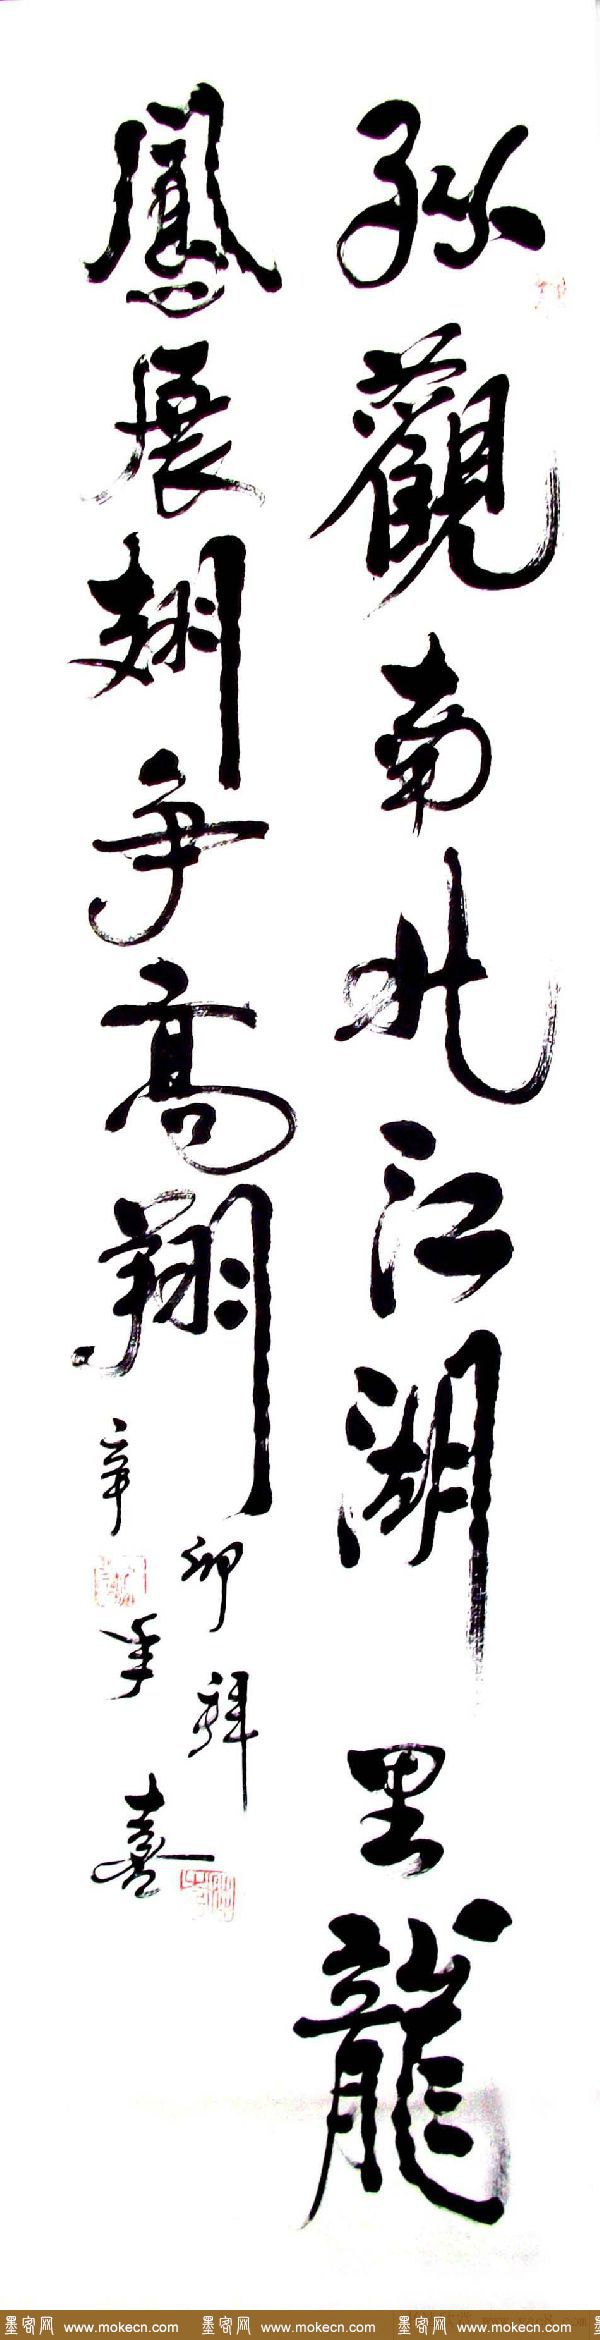 纵觀南北江湖里龍
鳳展翅争高翔
辛卯年喜
墨客网 www.mokecn.com 墨客网 www.mokecn.com 墨客网 www.mokecn.com